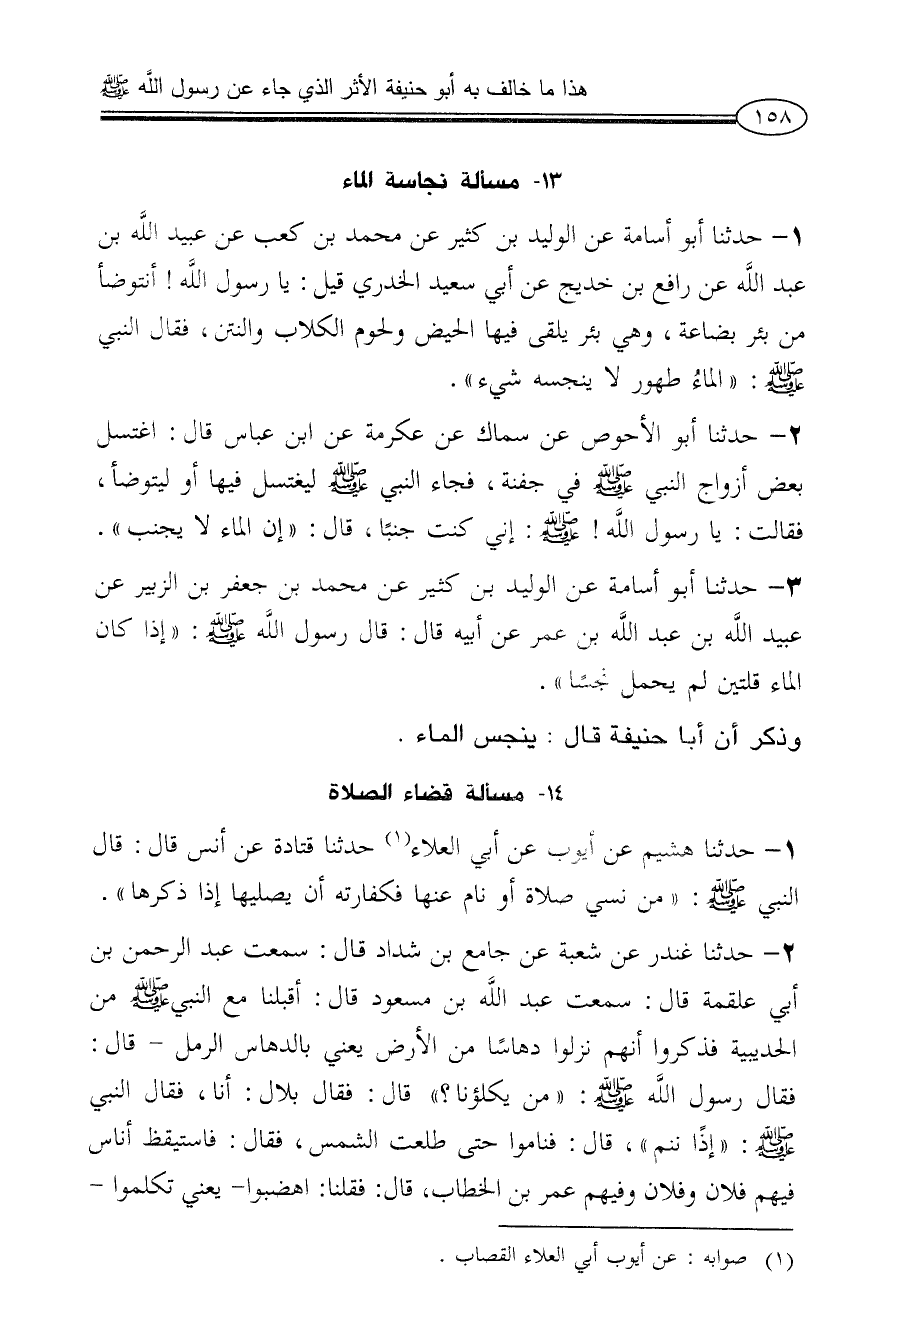 هذا ما خالف به أبو حنيفة الأثر الذي جاء عن رسول اللَّه ﷺ
١٥٨
١٣- مسألة نجاسة الماء
١- حدثنا أبو أسامة عن الوليد بن كثير عن محمد بن كعب عن عبيد اللَّه بن
عبد اللَّه عن رافع بن خديج عن أبي سعيد الخدري قيل : يا رسول اللَّه ! أنتوضأ
من بئر بضاعة ، وهي بئر يلقى فيها الحيض ولحوم الكلاب والنتن ، فقال النبي
ﷺ : «الماءُ طهور لا ينجسه شيء» .
٢- حدثنا أبو الأحوص عن سماك عن عكرمة عن ابن عباس قال : اغتسل
بعض أزواج النبي ﷺ في جفنة ، فجاء النبي ﷺ ليغتسل فيها أو ليتوضأ ،
فقالت : يا رسول اللَّه ! ﷺ : إني كنت جنبًا ، قال : «إن الماء لا يجنب» .
٣- حدثنا أبو أسامة عن الوليد بن كثير عن محمد بن جعفر بن الزبير عن
عبيد اللَّه بن عبد اللَّه بن عمر عن أبيه قال : قال رسول اللَّه ﷺ : «إذا كان
الماء قلتين لم يحمل نجسًا» .
وذكر أن أبا حنيفة قال : ينجس الماء .
١٤- مسألة قضاء الصلاة
١- حدثنا هشيم عن أيوب عن أبي العلاء(١) حدثنا قتادة عن أنس قال : قال
النبي ﷺ : «من نسي صلاة أو نام عنها فكفارته أن يصليها إذا ذكرها» .
٢- حدثنا غندر عن شعبة عن جامع بن شداد قال : سمعت عبد الرحمن بن
أبي علقمة قال : سمعت عبد اللَّه بن مسعود قال : أقبلنا مع النبي ﷺ من
الحديبية فذكروا أنهم نزلوا دهاسًا من الأرض يعني بالدهاس الرمل - قال :
فقال رسول اللَّه ﷺ : «من يكلؤنا؟» قال : فقال بلال : أنا ، فقال النبي
ﷺ : «إذًا ننم» ، قال : فناموا حتى طلعت الشمس ، فقال : فاستيقظ أناس
فيهم فلان وفلان وفيهم عمر بن الخطاب، قال: فقلنا: اهضبوا- يعني تكلموا -
(١) صوابه : عن أيوب أبي العلاء القصاب .